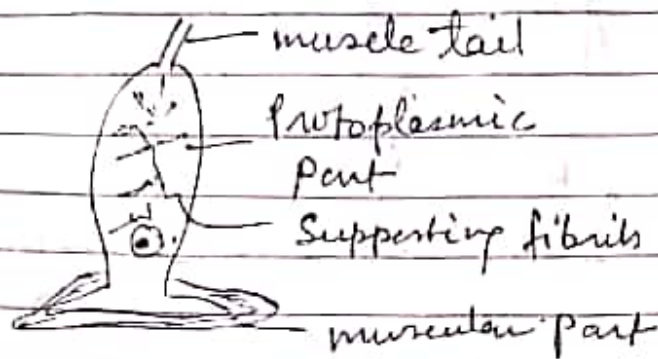 muscle tail
Protoplasmic
Part
Supporting fibrils
muscular part